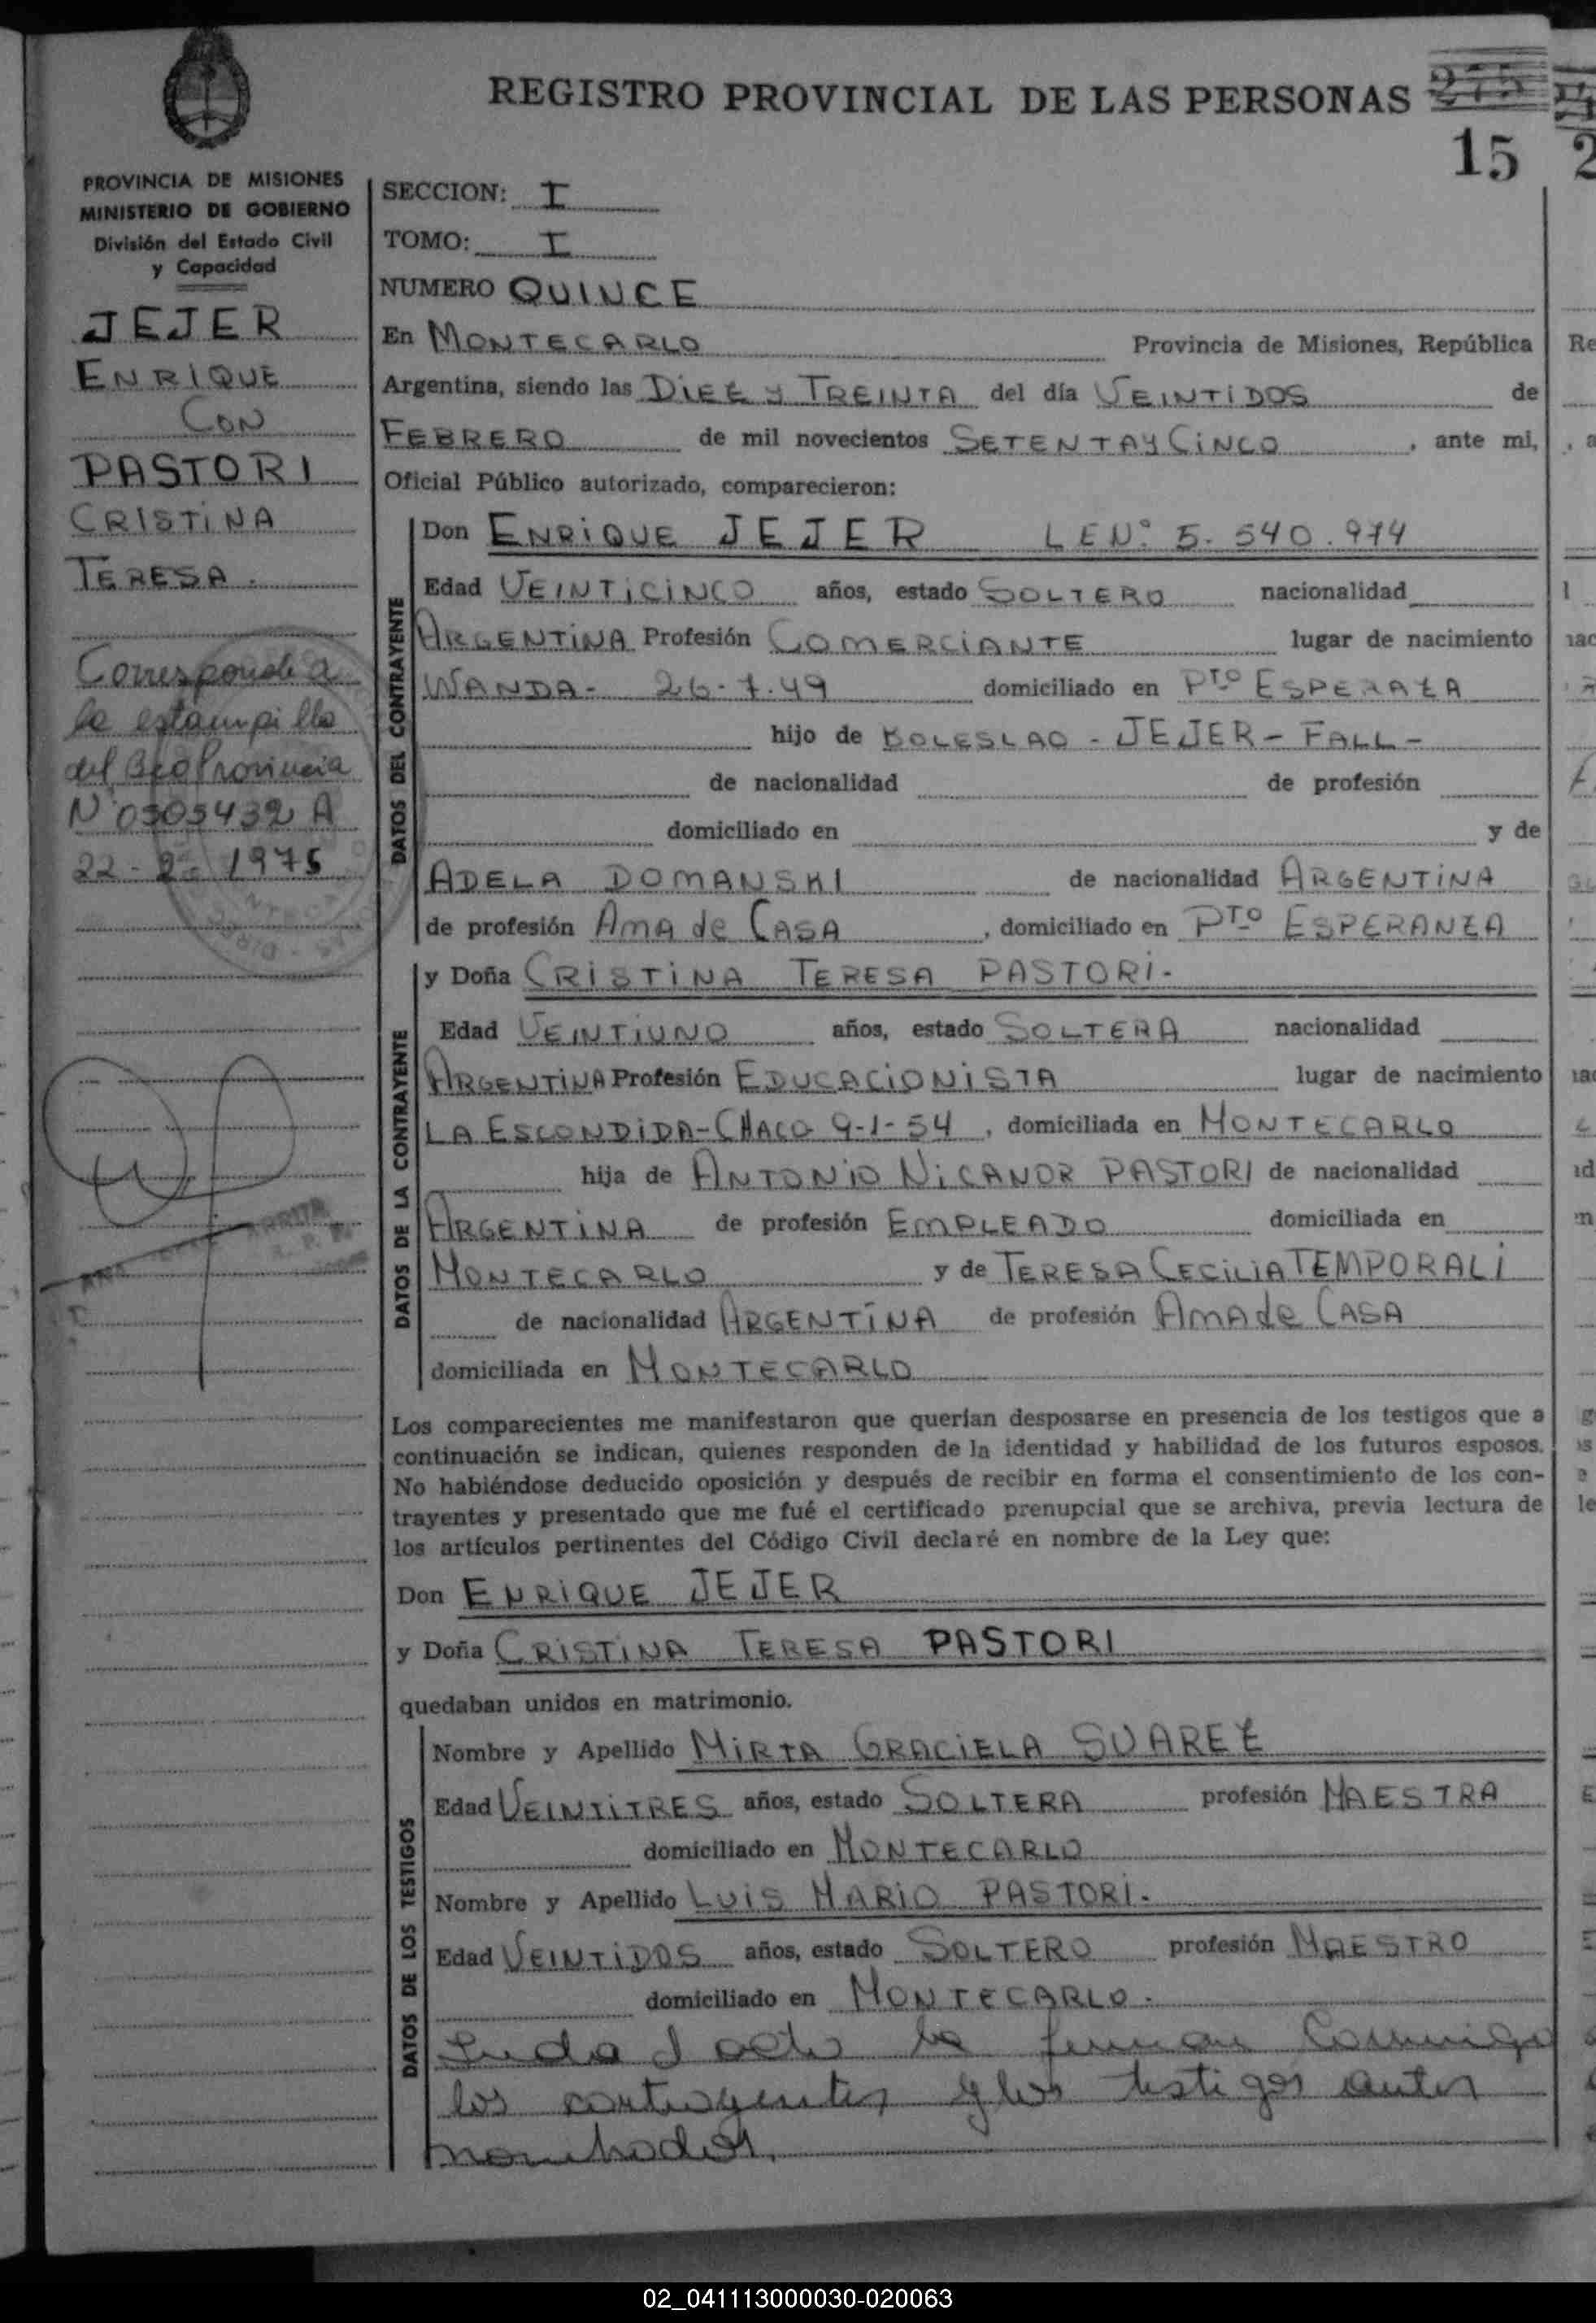 REGISTRO PROVINCIAL DE LAS PERSONAS 275
15
PROVINCIA DE MISIONES
MINISTERIO DE GOBIERNO
División del Estado Civil
y Capacidad
JEJER
ENRIQUE
CON
PASTORI
CRISTINA
TERESA.
Corresponde a
la estampilla
del Bco Provincia
Nº 0505432 A
22-2-1975
SECCION: I
TOMO: I
NUMERO QUINCE
En MONTECARLO Provincia de Misiones, República
Argentina, siendo las DIEZ y TREINTA del día VEINTIDOS de
FEBRERO de mil novecientos SETENTA y CINCO, ante mi,
Oficial Público autorizado, comparecieron:
DATOS DEL CONTRAYENTE
Don ENRIQUE JEJER L E Nº 5.540.974
Edad VEINTICINCO años, estado SOLTERO nacionalidad
ARGENTINA Profesión COMERCIANTE lugar de nacimiento
WANDA- 26-7-49 domiciliado en Pto ESPERAZA
hijo de BOLESLAO - JEJER - FALL -
de nacionalidad de profesión
domiciliado en y de
ADELA DOMANSKI de nacionalidad ARGENTINA
de profesión AMA de CASA, domiciliado en PTO ESPERANZA
DATOS DE LA CONTRAYENTE
y Doña CRISTINA TERESA PASTORI.
Edad VEINTIUNO años, estado SOLTERA nacionalidad
ARGENTINA Profesión EDUCACIONISTA lugar de nacimiento
LA ESCONDIDA-CHACO 9-1-54, domiciliada en MONTECARLO
hija de ANTONIO NICANOR PASTORI de nacionalidad
ARGENTINA de profesión EMPLEADO domiciliada en
MONTECARLO y de TERESA CECILIA TEMPORALI
de nacionalidad ARGENTINA de profesión AMA de CASA
domiciliada en MONTECARLO
Los comparecientes me manifestaron que querían desposarse en presencia de los testigos que a
continuación se indican, quienes responden de la identidad y habilidad de los futuros esposos.
No habiéndose deducido oposición y después de recibir en forma el consentimiento de los con-
trayentes y presentado que me fué el certificado prenupcial que se archiva, previa lectura de
los artículos pertinentes del Código Civil declaré en nombre de la Ley que:
Don ENRIQUE JEJER
y Doña CRISTINA TERESA PASTORI
quedaban unidos en matrimonio.
DATOS DE LOS TESTIGOS
Nombre y Apellido MIRTA GRACIELA SUAREZ
Edad VEINTITRES años, estado SOLTERA profesión MAESTRA
domiciliado en MONTECARLO
Nombre y Apellido LUIS MARIO PASTORI.
Edad VEINTIDOS años, estado SOLTERO profesión MAESTRO
domiciliado en MONTECARLO.
Leida el acta la firman Conmigo
los contrayentes y los testigos antes
nombrados.
02_041113000030-020063